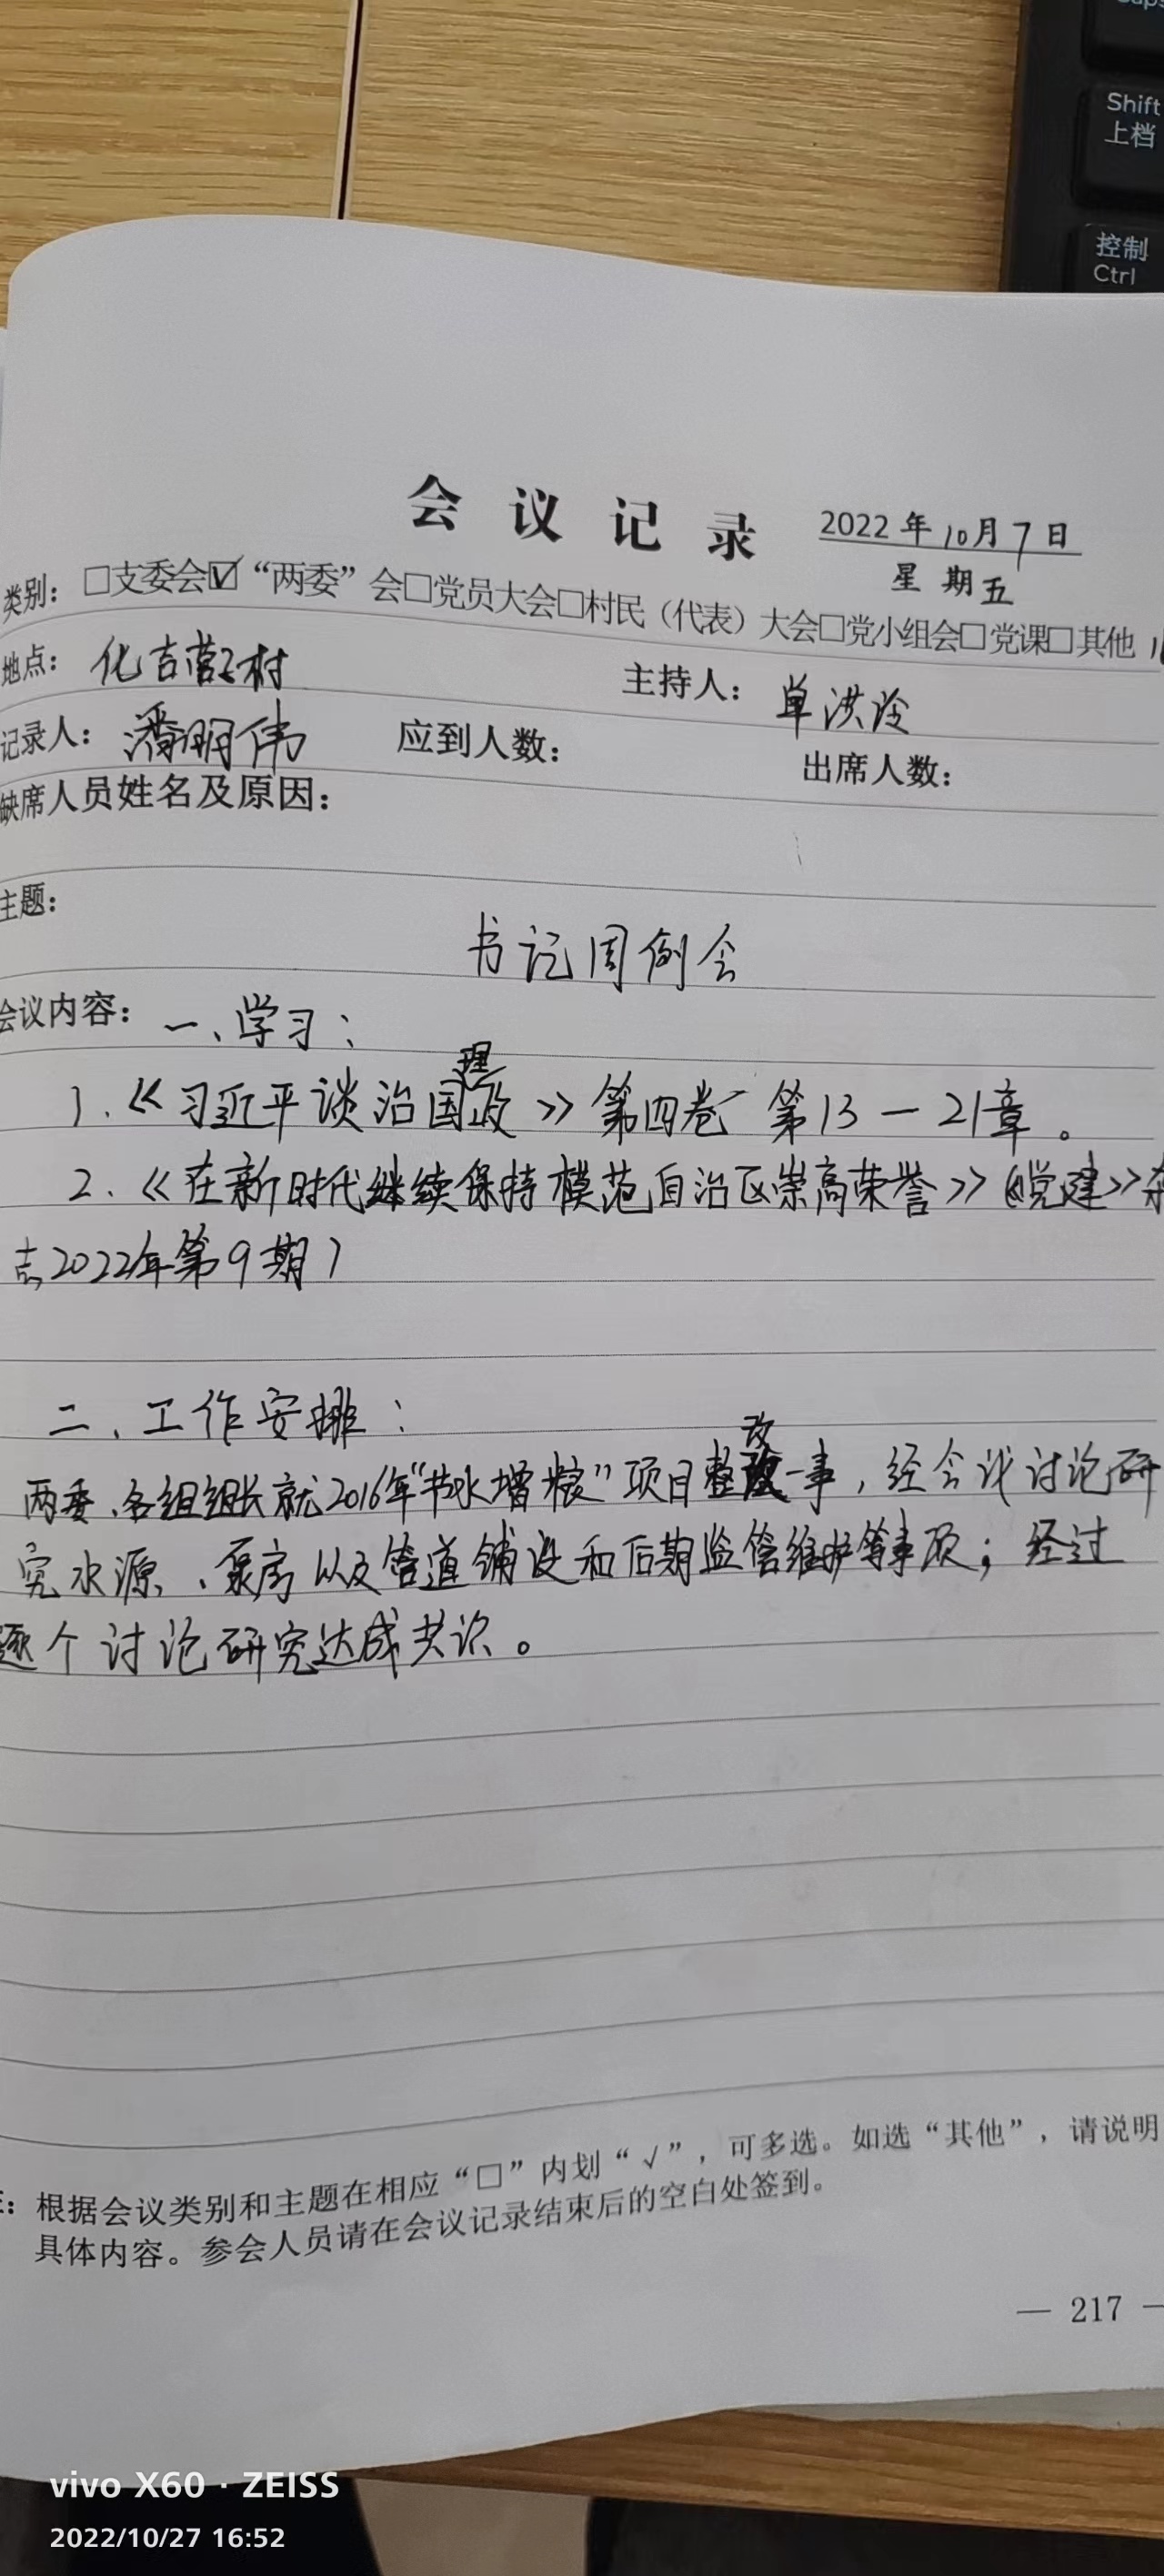 Shift
上档
控制
Ctrl
会议记录 2022年10月7日
星期五
类别：□支委会☑“两委”会□党员大会□村民（代表）大会□党小组会□党课□其他
地点：化吉营子村 主持人：单洪玲
记录人：潘明伟 应到人数： 出席人数：
缺席人员姓名及原因：
主题：
书记周例会
会议内容：一、学习：
1.《习近平谈治国理政》第四卷 第13—21章。
2.《在新时代继续保持模范自治区崇高荣誉》（《党建》杂
志2022年第9期）
二、工作安排：
两委、各组组长就2016年“节水增粮”项目整改一事，经会议讨论研
究水源、泵房以及管道铺设和后期监管维护等事项；经过
逐个讨论研究达成共识。
：根据会议类别和主题在相应“□”内划“√”，可多选。如选“其他”，请说明
具体内容。参会人员请在会议记录结束后的空白处签到。
— 217 —
vivo X60 · ZEISS
2022/10/27 16:52